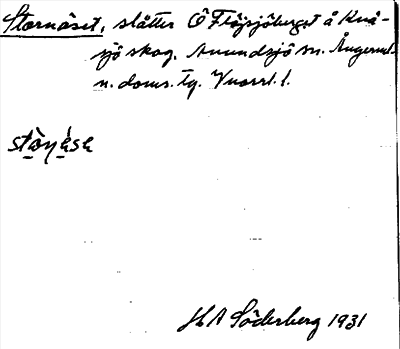 Stornäset, slåtter Ö Flösjöberget å Knä-
sjö skog. Anundsjö sn. Ångerml.
n. doms. tg. Vnorrl. l.
H A Söderberg 1931